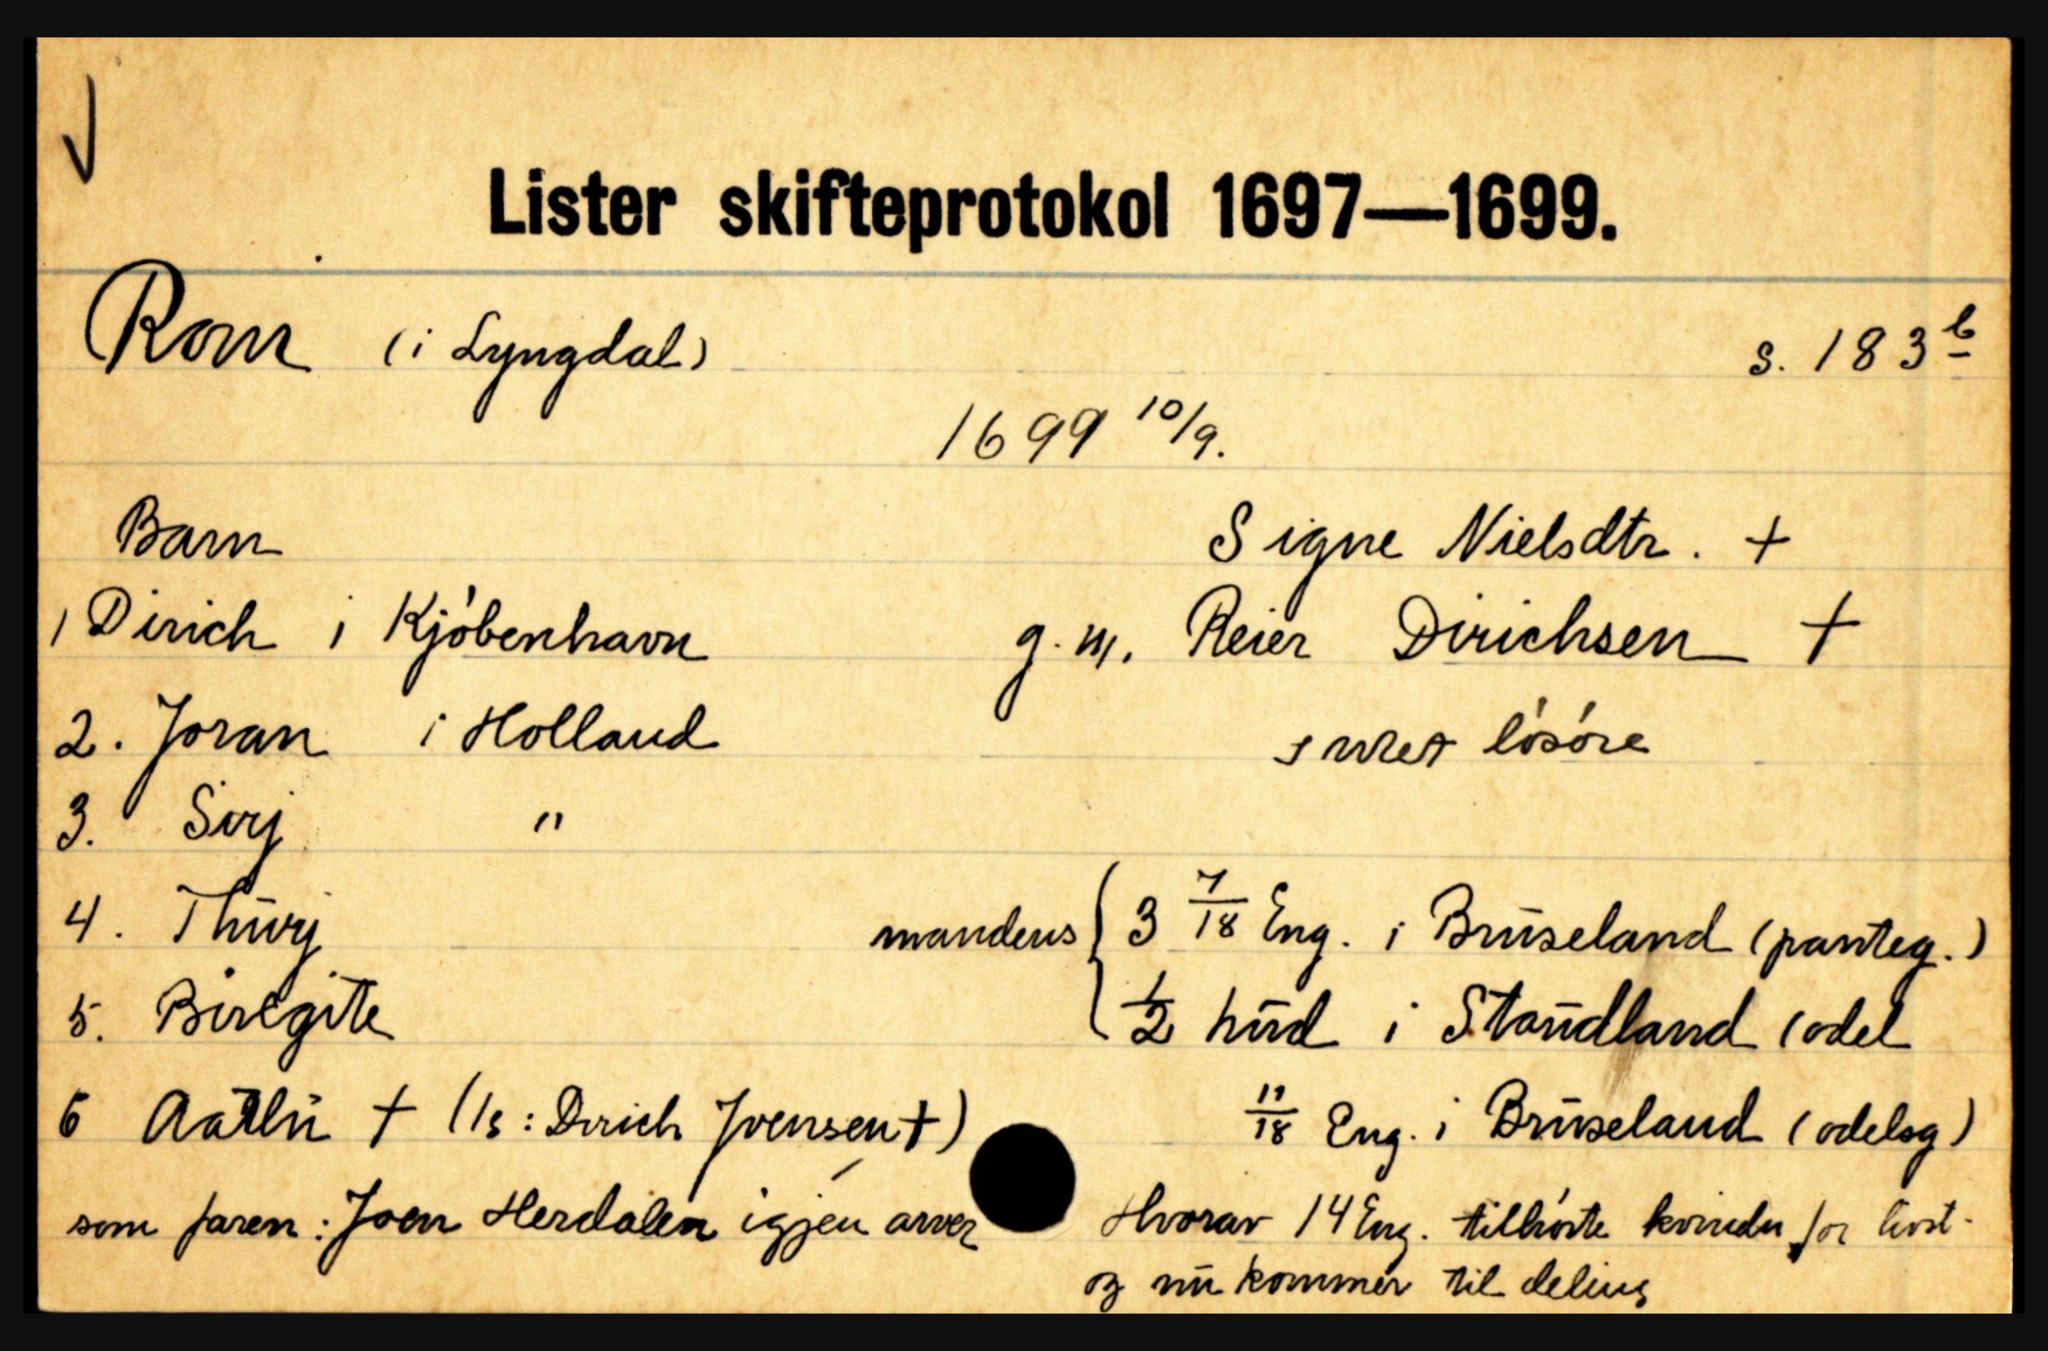 Lister skifteprotokol 1697—1699.
Rom (i Lyngdal) s. 183 b
1699 10/9.
Barn
Signe Nielsdtr. +
1 Dirich i Kjöbenhavn
g. m. Reier Dirichsen +
2. Joran i Holland
intet lösöre
3. Sirj "
4. Thurj
mandens { 3 7/18 Eng. i Bruseland (panteg.)
5. Biregite
1/2 hud i Staudland (odel
6 Aaslu + (1s: Dirich Joensen +)
11/18 Eng. i Bruseland (odelsg)
som faren: Joen Herdalen igjen arver
Hvorav 14 Eng. tilhörte kvinden for livst-
og nu kommer til deling